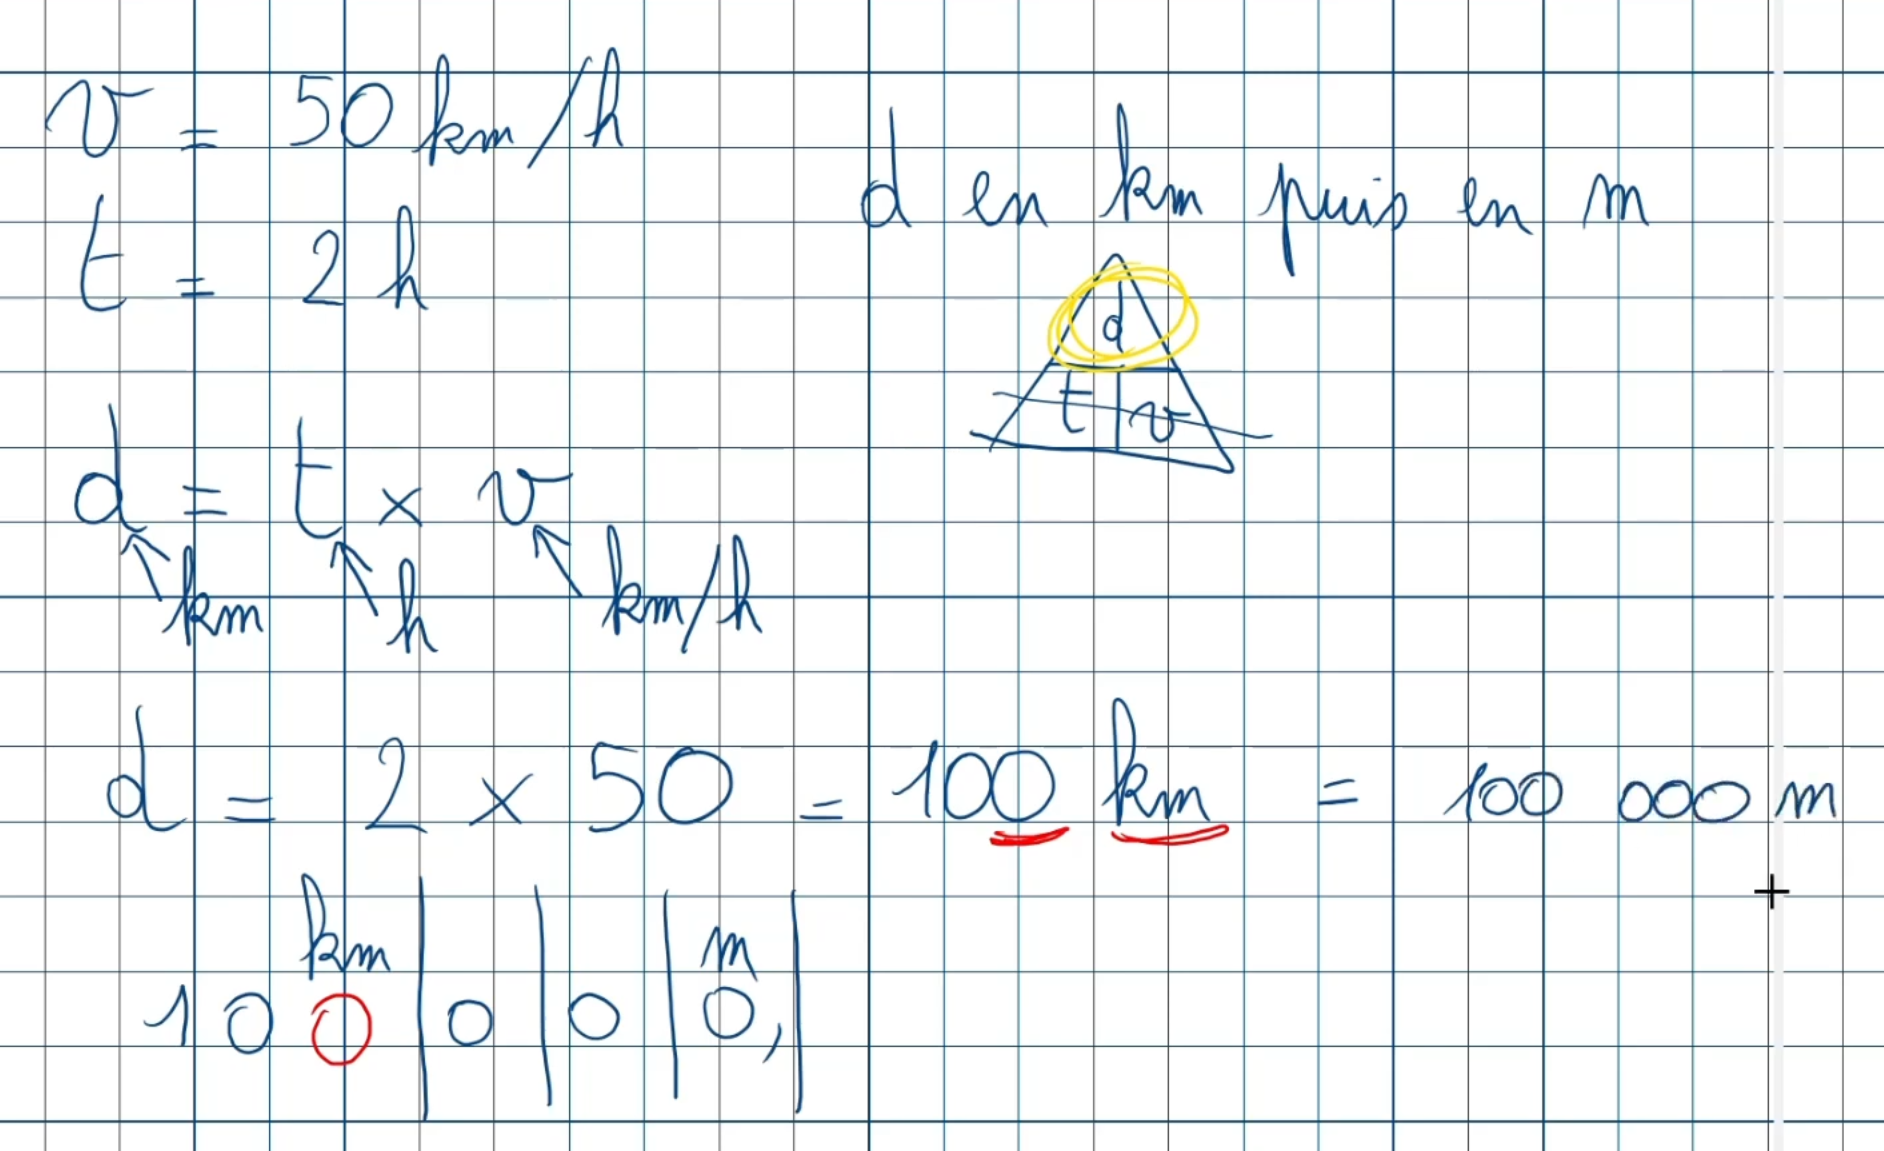 v = 50 km/h
t = 2 h
d en km puis en m
d
t v
d = t × v
km h km/h
d = 2 × 50 = 100 km = 100 000 m
km m
1 0 0 | 0 | 0 | 0, |